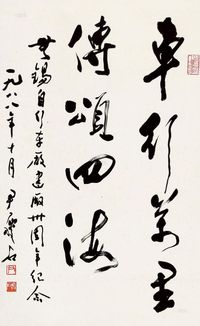 車行萬里
傳頌四海
無錫自行車廠建廠卅周年紀念
一九八八年十月